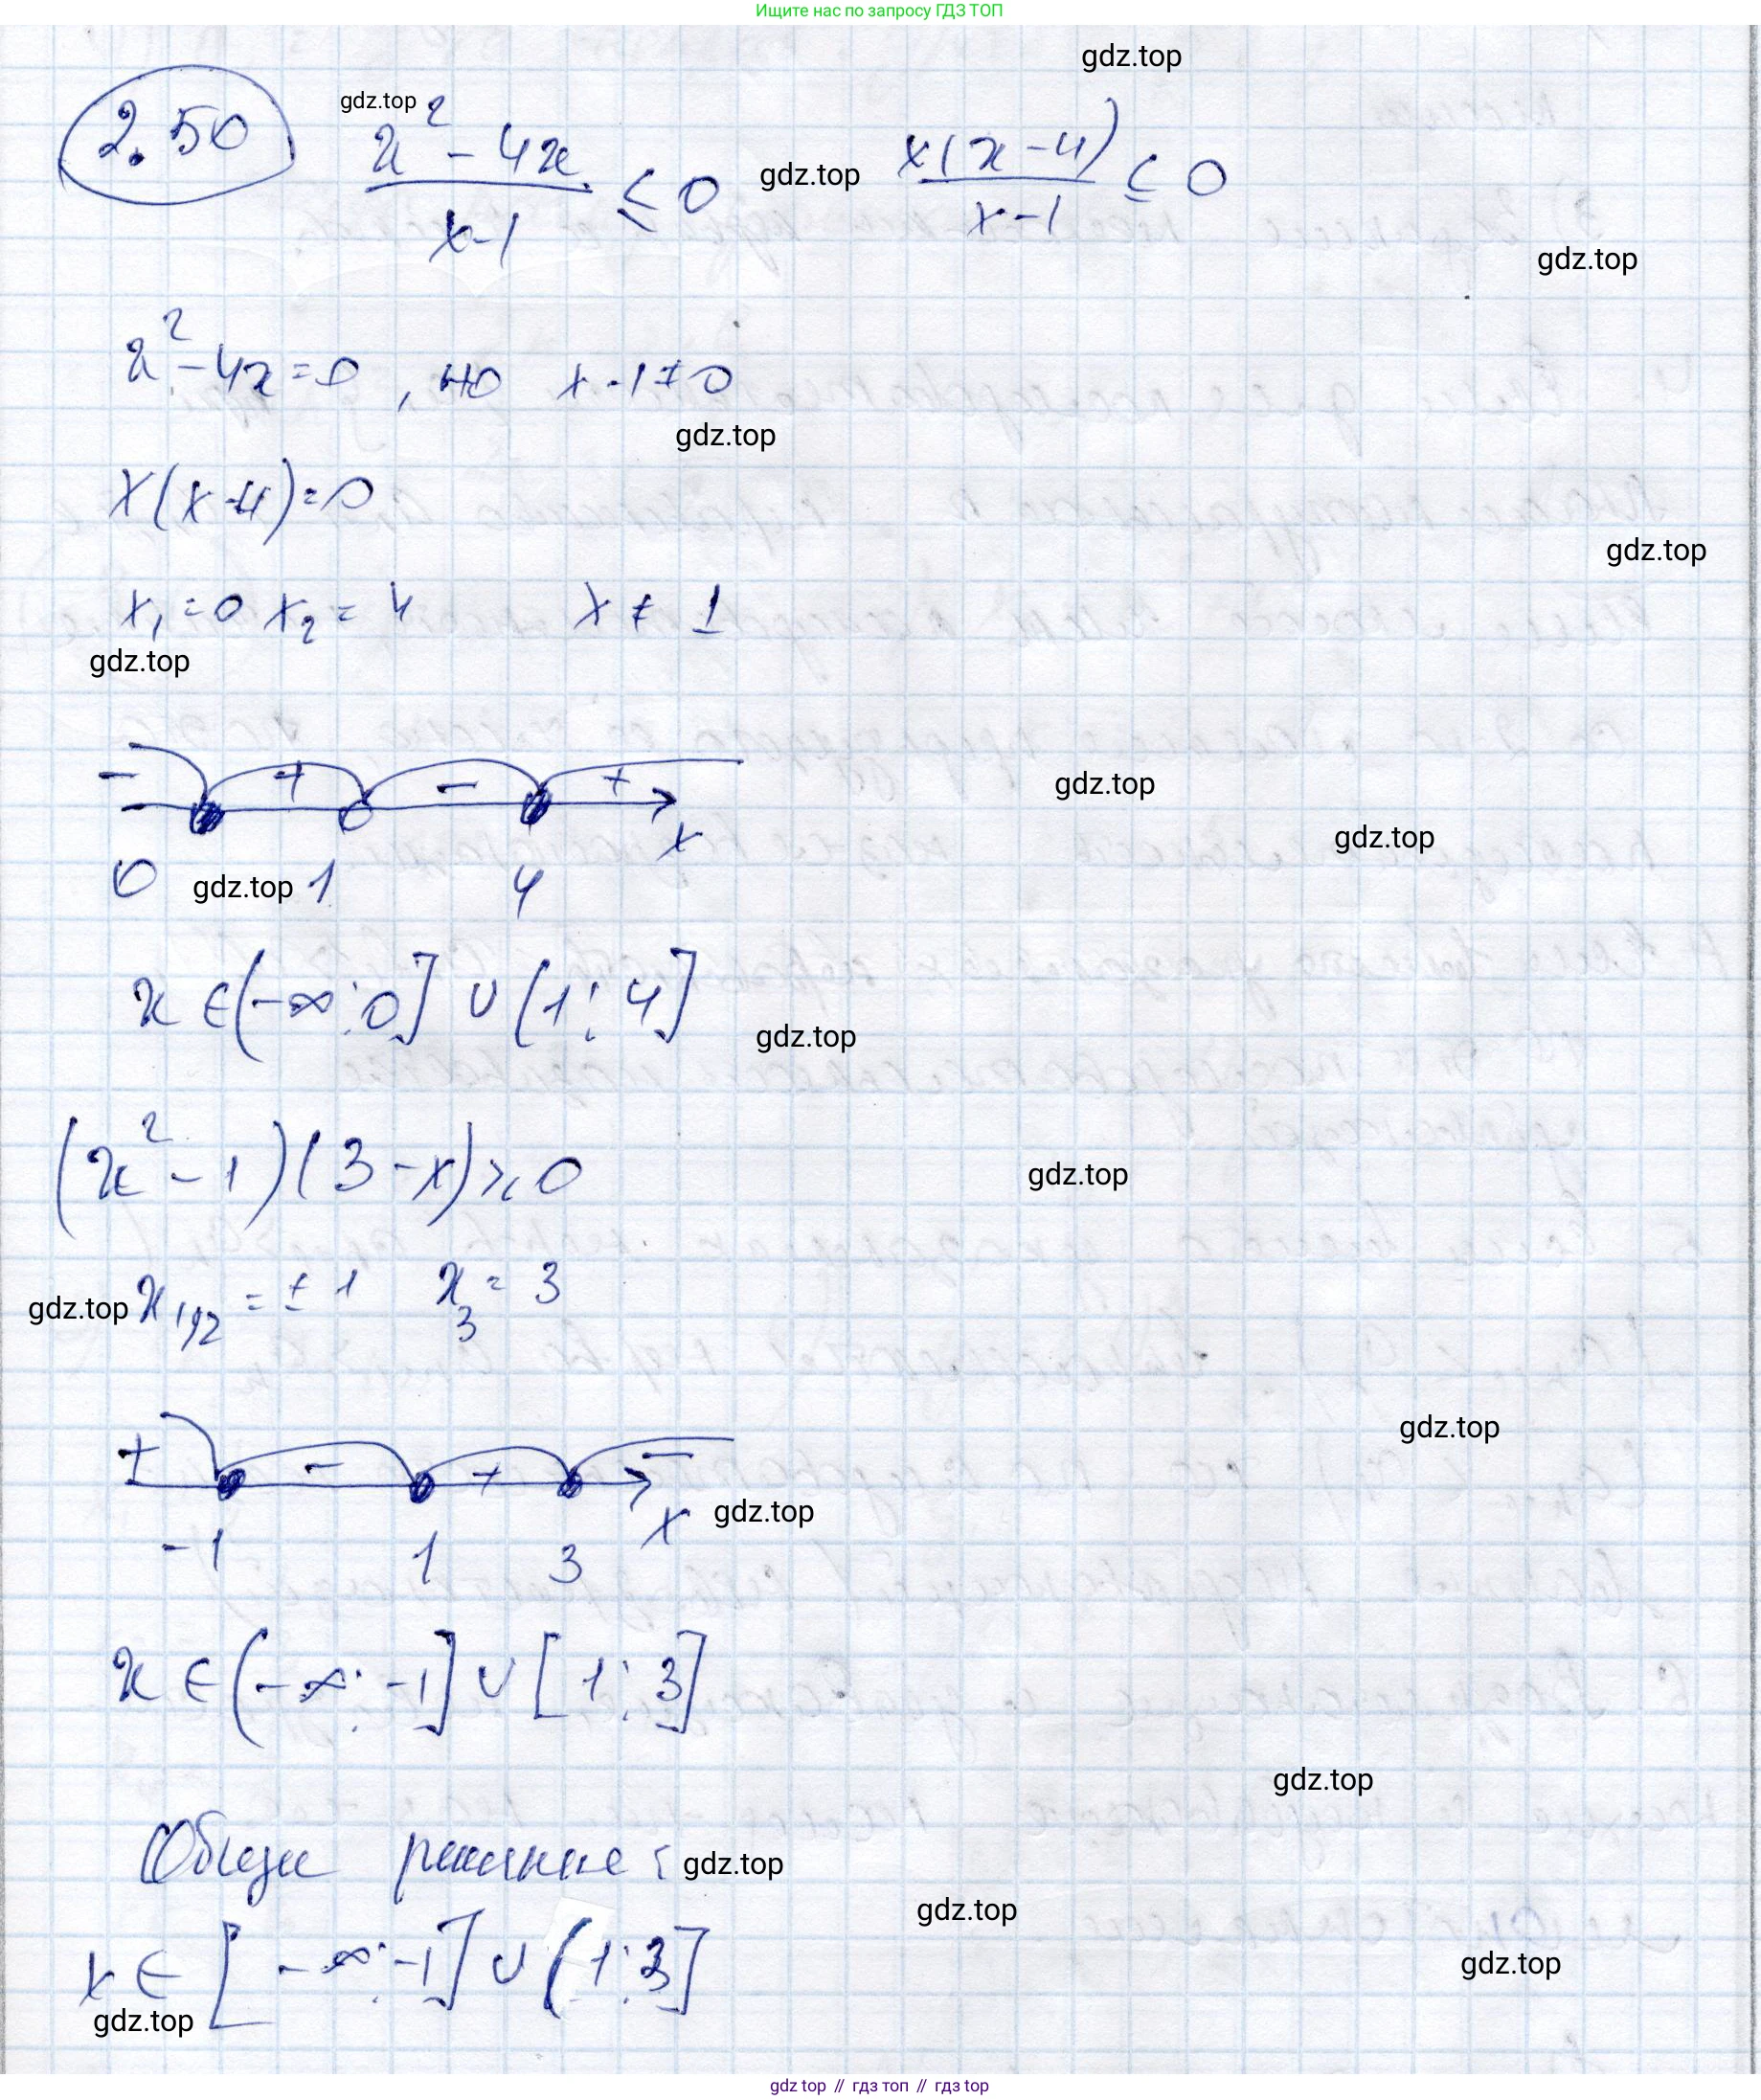 Ищите нас по запросу ГДЗ ТОП
gdz.top
2.50 gdz.top (x² - 4x)/(x-1) ≤ 0 gdz.top x(x-4)/(x-1) ≤ 0
gdz.top
x² - 4x = 0, но x - 1 ≠ 0
gdz.top
x(x-4) = 0
gdz.top
x₁ = 0 x₂ = 4 x ≠ 1
gdz.top
- + - +
gdz.top
x
gdz.top
0 gdz.top 1 4
x ∈ (-∞; 0] ∪ (1; 4]
gdz.top
(x² - 1)(3 - x) ≥ 0
gdz.top
gdz.top x₁,₂ = ± 1 x₃ = 3
gdz.top
+ - + -
x gdz.top
-1 1 3
x ∈ (-∞; -1] ∪ [1; 3]
gdz.top
Общее решение: gdz.top
gdz.top
x ∈ [-∞; -1] ∪ (1; 3]
gdz.top
gdz.top
gdz top // гдз топ // gdz top